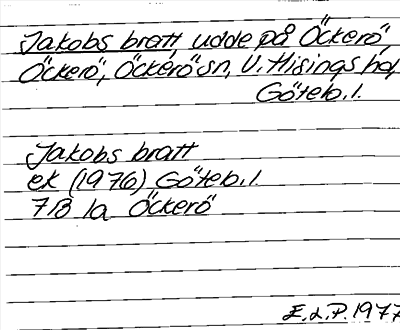 Jakobs bratt, udde på Öckerö,
Öckerö, Öckerö sn, V. Hisings hd,
Göteb. l.
Jakobs bratt
ek (1976) Göteb. l.
7B 1a Öckerö
E.L.P. 1977